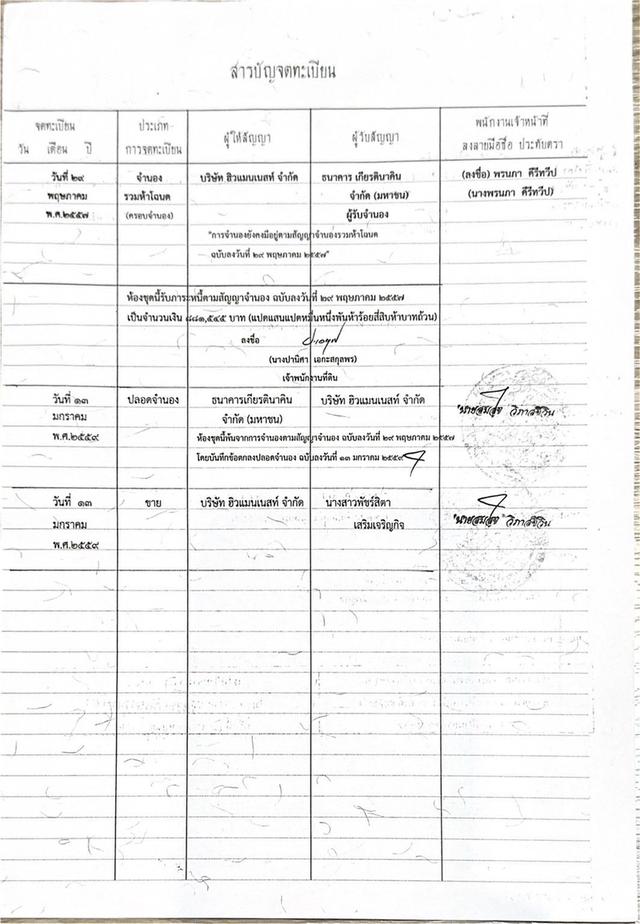 สารบัญจดทะเบียน
จดทะเบียน
วัน เดือน ปี
ประเภท
การจดทะเบียน
ผู้ให้สัญญา
ผู้รับสัญญา
พนักงานเจ้าหน้าที่
ลงลายมือชื่อ ประทับตรา
วันที่ ๒๙ จำนอง บริษัท ฮิวแมนเนสท์ จำกัด ธนาคาร เกียรตินาคิน (ลงชื่อ) พรนภา คีรีทวีป
พฤษภาคม รวมห้าโฉนด จำกัด (มหาชน) (นางพรนภา คีรีทวีป)
พ.ศ.๒๕๕๗ (ครอบจำนอง) ผู้รับจำนอง
"การจำนองยังคงมีอยู่ตามสัญญาจำนองรวมห้าโฉนด
ฉบับลงวันที่ ๒๙ พฤษภาคม ๒๕๕๗"
ห้องชุดนี้รับภาระหนี้ตามสัญญาจำนอง ฉบับลงวันที่ ๒๙ พฤษภาคม ๒๕๕๗
เป็นจำนวนเงิน ๘๘๑,๕๔๕ บาท (แปดแสนแปดหมื่นหนึ่งพันห้าร้อยสี่สิบห้าบาทถ้วน)
ลงชื่อ
(นางปานิศา เอกะสกุลพร)
เจ้าพนักงานที่ดิน
วันที่ ๑๓ ปลอดจำนอง ธนาคารเกียรตินาคิน บริษัท ฮิวแมนเนสท์ จำกัด
มกราคม จำกัด (มหาชน)
พ.ศ.๒๕๕๙ ห้องชุดนี้พ้นจากการจำนองตามสัญญาจำนอง ฉบับลงวันที่ ๒๙ พฤษภาคม ๒๕๕๗
โดยบันทึกข้อตกลงปลอดจำนอง ฉบับลงวันที่ ๑๓ มกราคม ๒๕๕๙
วันที่ ๑๓ ขาย บริษัท ฮิวแมนเนสท์ จำกัด นางสาวพัชร์สิตา
มกราคม เสริมเจริญกิจ
พ.ศ.๒๕๕๙